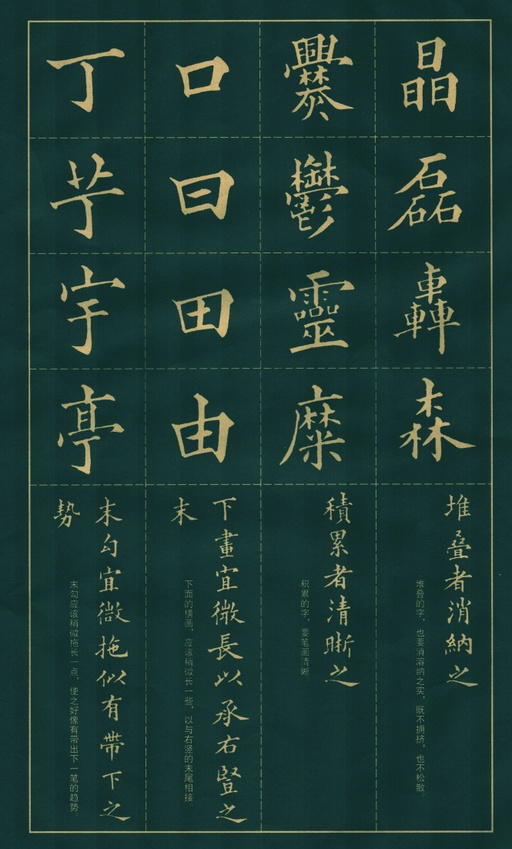 晶
磊
轟
森
堆疊者消納之
堆叠的字，也要消溶纳之实，既不拥挤，也不松散。
爨
鬱
靈
糜
積累者清晰之
积累的字，要笔画清晰
口
曰
田
由
下畫宜微長以承右豎之
末
下面的横画，应该稍微长一些，以与右竖的末尾相接
丁
芓
宇
亭
末勾宜微拖似有帶下之
勢
末勾应该稍微拖长一点，使之好像有带出下一笔的趋势